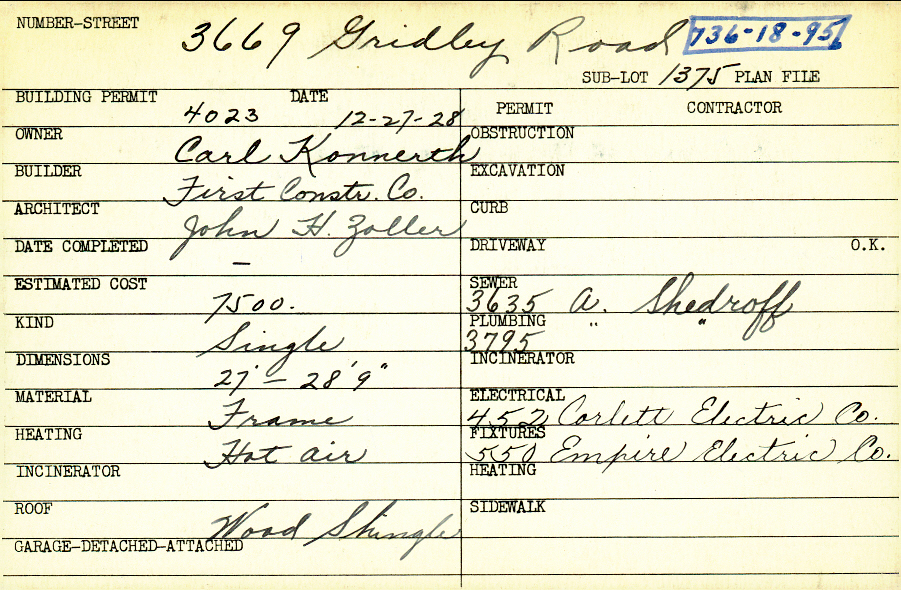 NUMBER-STREET 3669 Gridley Road 736-18-95
SUB-LOT 1375 PLAN FILE
BUILDING PERMIT 4023 DATE 12-27-28
OWNER Carl Konnerth
BUILDER First Constr. Co.
ARCHITECT John H. Zoller
DATE COMPLETED —
ESTIMATED COST 7500.
KIND Single
DIMENSIONS 27' - 28' 9"
MATERIAL Frame
HEATING Hot air
INCINERATOR
ROOF Wood Shingle
GARAGE-DETACHED-ATTACHED
PERMIT CONTRACTOR
OBSTRUCTION
EXCAVATION
CURB
DRIVEWAY O.K.
SEWER 3635 A. Shedroff
PLUMBING 3795 " "
INCINERATOR
ELECTRICAL 452 Corlett Electric Co.
FIXTURES 550 Empire Electric Co.
HEATING
SIDEWALK